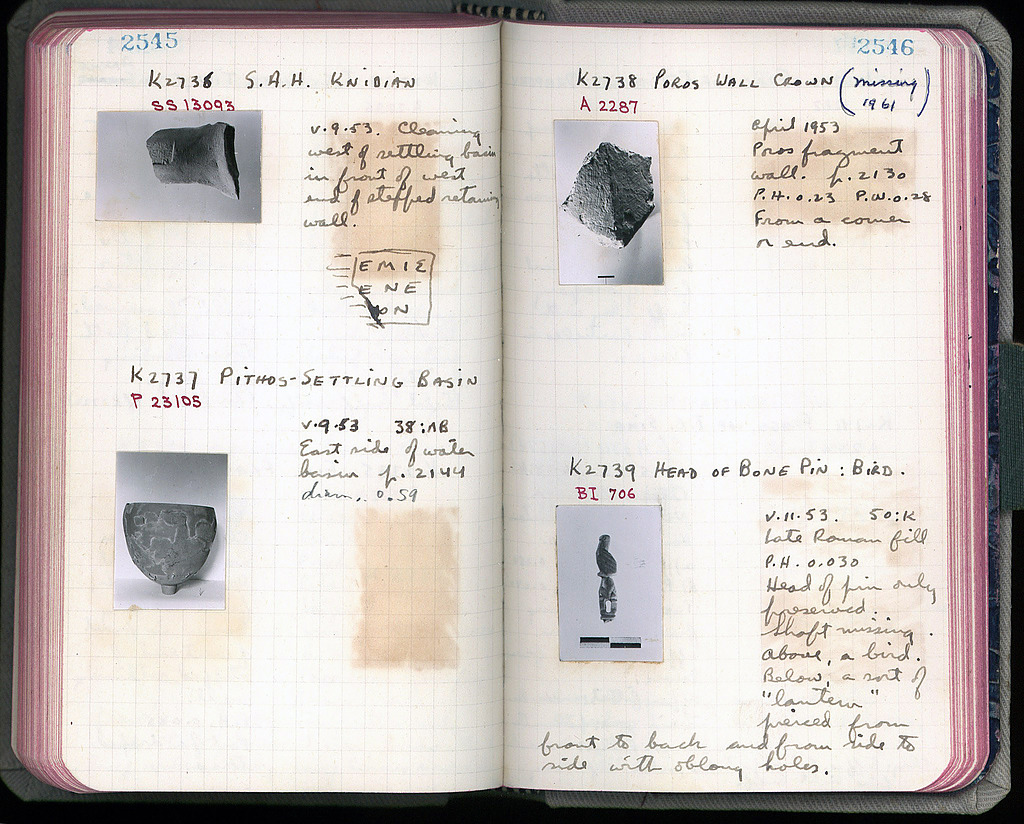 2545
K2736 S.A.H. KNIDIAN
SS 13093
V.9.53. Cleaning
west of settling basin
in front of west
end of stepped retaining
wall.
EMIΣ
ENE
ON
K2737 PITHOS-SETTLING BASIN
P 23105
V.9.53 38:AB
East side of water
basin p. 2144
diam. 0.59
2546
K2738 POROS WALL CROWN (missing
1961)
A 2287
April 1953
Poros fragment
wall. p. 2130
P.H. 0.23 P.W. 0.28
From a corner
or end.
K2739 HEAD OF BONE PIN: BIRD.
BI 706
V.11.53. 50:K
Late Roman fill
P.H. 0.030
Head of pin only
preserved.
Shaft missing.
Above, a bird.
Below, a sort of
"lantern"
pierced from
front to back and from side to
side with oblong holes.